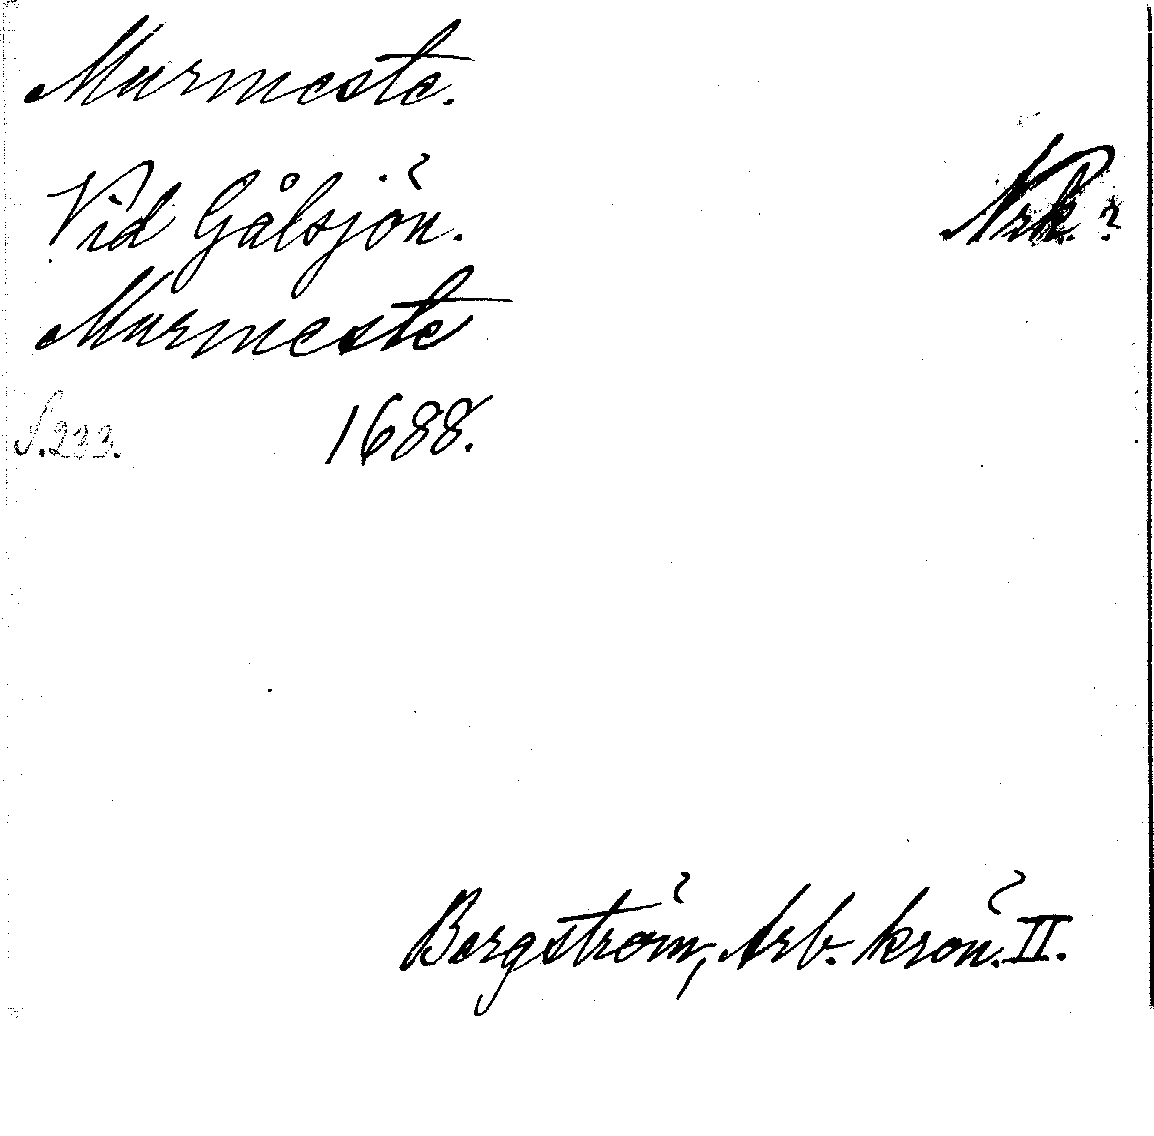 Murmeste.
Vid Gålsjön. Nrk?
Murmeste
S. 233. 1688.
Bergström, Arb. krön. II.